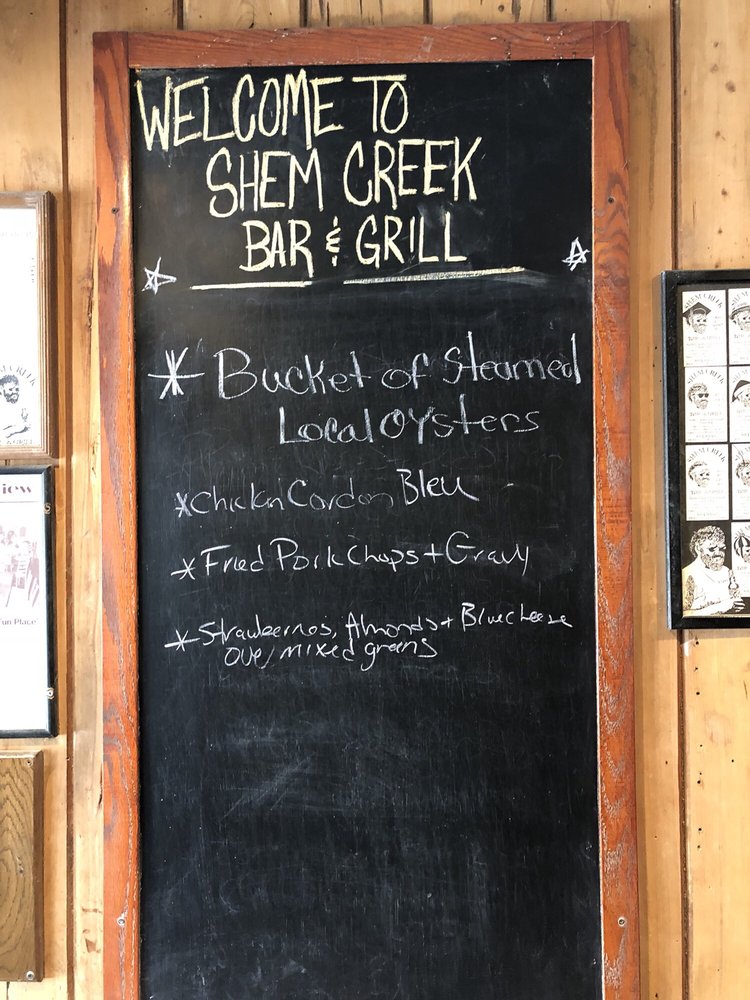 WELCOME TO
SHEM CREEK
BAR & GRILL
* Bucket of Steamed
Local Oysters
* Chicken Cordon Bleu
* Fried Pork Chops + Gravy
* Strawberries, Almonds + Bluecheese
over mixed greens
iew
un Place
SHEM CREEK